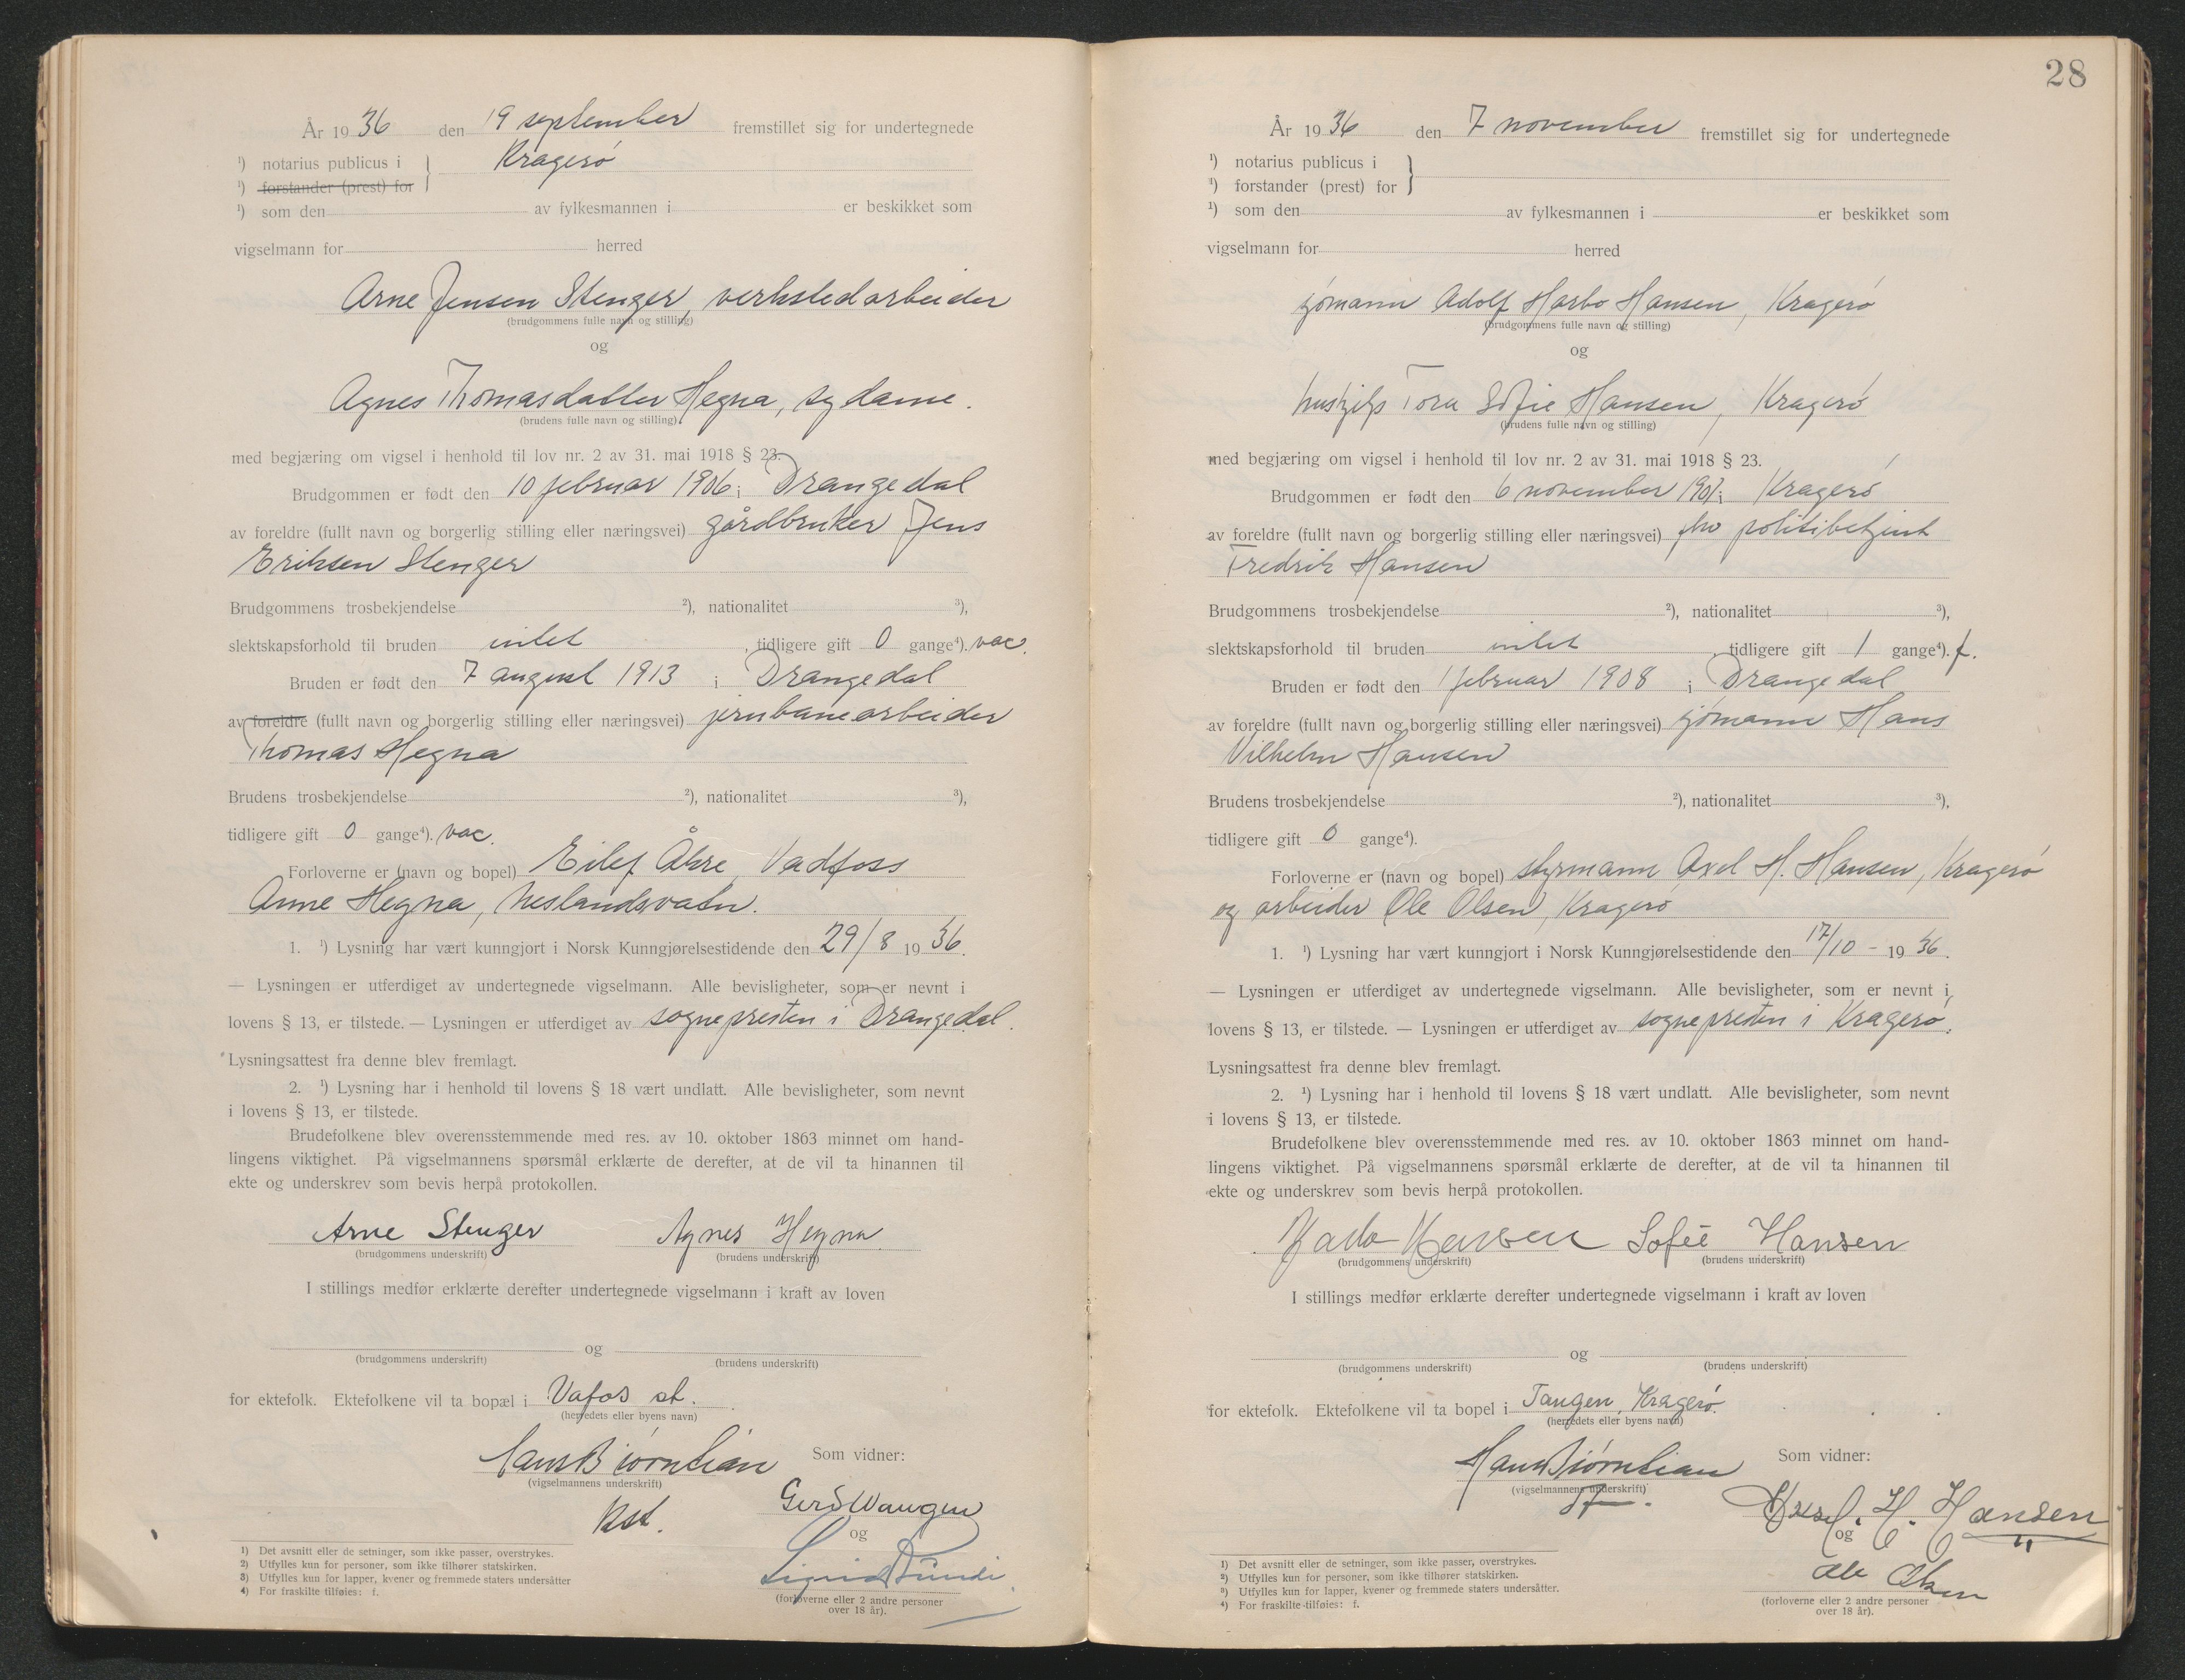 År 1936 den 19 september fremstillet sig for undertegnede
¹) notarius publicus i Kragerø
¹) forstander (prest) for
¹) som den av fylkesmannen i er beskikket som
vigselmann for herred
Arne Jensen Stenger, verkstedarbeider
(brudgommens fulle navn og stilling)
og
Agnes Thomasdatter Hegna, sydame.
(brudens fulle navn og stilling)
med begjæring om vigsel i henhold til lov nr. 2 av 31. mai 1918 § 23.
Brudgommen er født den 10 februar 1906 i Drangedal
av foreldre (fullt navn og borgerlig stilling eller næringsvei) gårdbruker Jens
Eriksen Stenger
Brudgommens trosbekjendelse ²), nationalitet ³),
slektskapsforhold til bruden intet , tidligere gift 0 gange⁴). vac.
Bruden er født den 7 august 1913 i Drangedal
av foreldre (fullt navn og borgerlig stilling eller næringsvei) jernbanearbeider
Thomas Hegna
Brudens trosbekjendelse ²), nationalitet ³),
tidligere gift 0 gange⁴). vac.
Forloverne er (navn og bopel) Eilef Åkre, Vadfoss
Anne Hegna, Neslandsvatn.
1. ¹) Lysning har vært kunngjort i Norsk Kunngjørelsestidende den 29/8 1936.
— Lysningen er utferdiget av undertegnede vigselmann. Alle bevisligheter, som er nevnt i
lovens § 13, er tilstede. — Lysningen er utferdiget av sognepresten i Drangedal.
Lysningsattest fra denne blev fremlagt.
2. ¹) Lysning har i henhold til lovens § 18 vært undlatt. Alle bevisligheter, som nevnt
i lovens § 13, er tilstede.
Brudefolkene blev overensstemmende med res. av 10. oktober 1863 minnet om hand-
lingens viktighet. På vigselmannens spørsmål erklærte de derefter, at de vil ta hinannen til
ekte og underskrev som bevis herpå protokollen.
Arne Stenger Agnes Hegna
(brudgommens underskrift) (brudens underskrift)
I stillings medfør erklærte derefter undertegnede vigselmann i kraft av loven
og
(brudgommens underskrift) (brudens underskrift)
for ektefolk. Ektefolkene vil ta bopæl i Vafos st.
(herredets eller byens navn)
Hans Bjørnstian Som vidner:
(vigselmannens underskrift)
Kst. Gerd Wangen
og
Sigrid
(forloverne eller 2 andre personer
over 18 år).
1) Det avsnitt eller de setninger, som ikke passer, overstrykes.
2) Utfylles kun for personer, som ikke tilhører statskirken.
3) Utfylles kun for lapper, kvener og fremmede staters undersåtter
4) For fraskilte tilføies: f.
28
År 1936 den 7 november fremstillet sig for undertegnede
¹) notarius publicus i
¹) forstander (prest) for
¹) som den av fylkesmannen i er beskikket som
vigselmann for herred
sjømann Adolf Harbo Hansen, Kragerø
(brudgommens fulle navn og stilling)
og
hushjelp Tora Sofie Hansen, Kragerø
(brudens fulle navn og stilling)
med begjæring om vigsel i henhold til lov nr. 2 av 31. mai 1918 § 23.
Brudgommen er født den 6 november 1901 i Kragerø
av foreldre (fullt navn og borgerlig stilling eller næringsvei) fhv politibetjent
Fredrik Hansen
Brudgommens trosbekjendelse ²), nationalitet ³),
slektskapsforhold til bruden intet , tidligere gift 1 gange⁴). f.
Bruden er født den 1 februar 1908 i Drangedal
av foreldre (fullt navn og borgerlig stilling eller næringsvei) sjømann Hans
Vilhelm Hansen
Brudens trosbekjendelse ²), nationalitet ³),
tidligere gift 0 gange⁴).
Forloverne er (navn og bopel) styrmann Axel H. Hansen, Kragerø
og arbeider Ole Olsen, Kragerø
1. ¹) Lysning har vært kunngjort i Norsk Kunngjørelsestidende den 17/10 - 1936.
— Lysningen er utferdiget av undertegnede vigselmann. Alle bevisligheter, som er nevnt i
lovens § 13, er tilstede. — Lysningen er utferdiget av sognepresten i Kragerø.
Lysningsattest fra denne blev fremlagt.
2. ¹) Lysning har i henhold til lovens § 18 vært undlatt. Alle bevisligheter, som nevnt
i lovens § 13, er tilstede.
Brudefolkene blev overensstemmende med res. av 10. oktober 1863 minnet om hand-
lingens viktighet. På vigselmannens spørsmål erklærte de derefter, at de vil ta hinannen til
ekte og underskrev som bevis herpå protokollen.
Hansen Sofie Hansen
(brudgommens underskrift) (brudens underskrift)
I stillings medfør erklærte derefter undertegnede vigselmann i kraft av loven
og
(brudgommens underskrift) (brudens underskrift)
for ektefolk. Ektefolkene vil ta bopel i Tangen, Kragerø.
(herredets eller byens navn)
Hans Bjørnstian Som vidner:
(vigselmannens underskrift)
Axel. H. Hansen
og
Ole Olsen
(forloverne eller 2 andre personer
over 18 år).
1) Det avsnitt eller de setninger, som ikke passer, overstrykes.
2) Utfylles kun for personer, som ikke tilhører statskirken.
3) Utfylles kun for lapper, kvener og fremmede staters undersåtter.
4) For fraskilte tilføies: f.